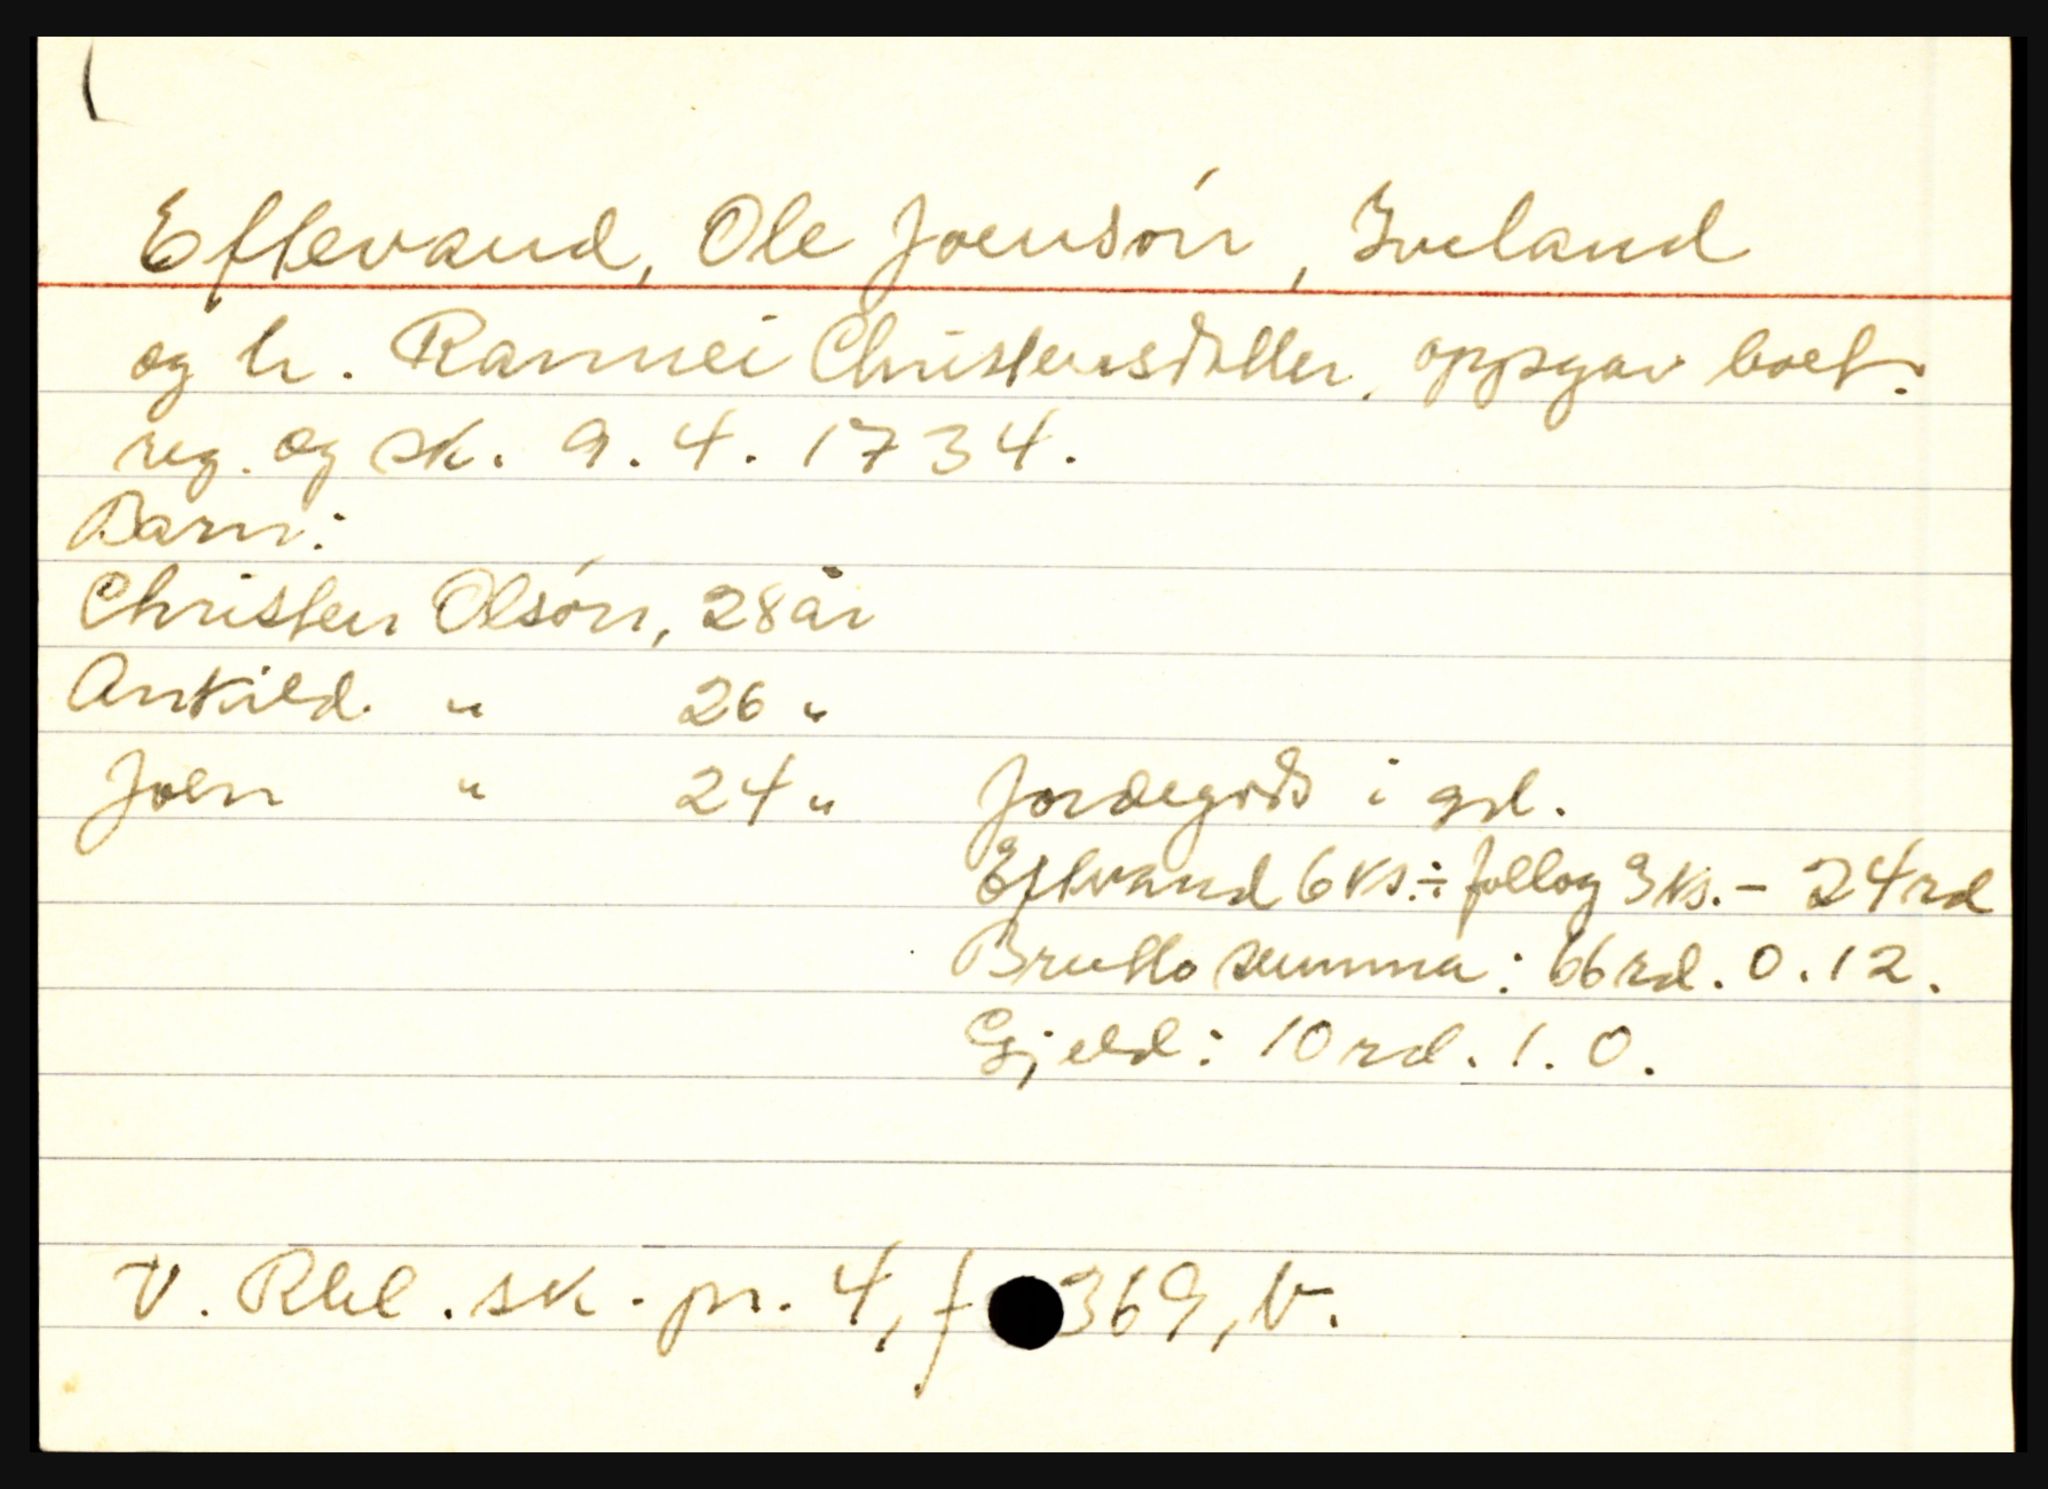 Eftevand, Ole Joensón, Iveland
og h. Rannei Christensdtter, oppgav boet.
reg. og sk. 9.4.1734.
Barn:
Christen Olsón, 28 år
Ankild " 26 "
Joen " 24 " Jordegods i grd.
Eftevand 6 ks. ÷ follog 3 ks. - 24 rd
Brutto summa: 66 rd. 0. 12.
Gjeld: 10 rd. 1. 0.
V. Rbl. sk. pr. 4, f 369, b.